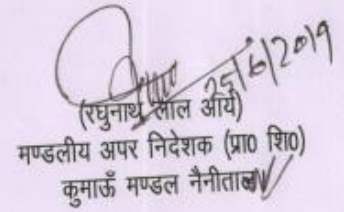 25/6/2019
(रघुनाथ लाल आर्य)
मण्डलीय अपर निदेशक (प्रा0 शि0)
कुमाऊँ मण्डल नैनीताल